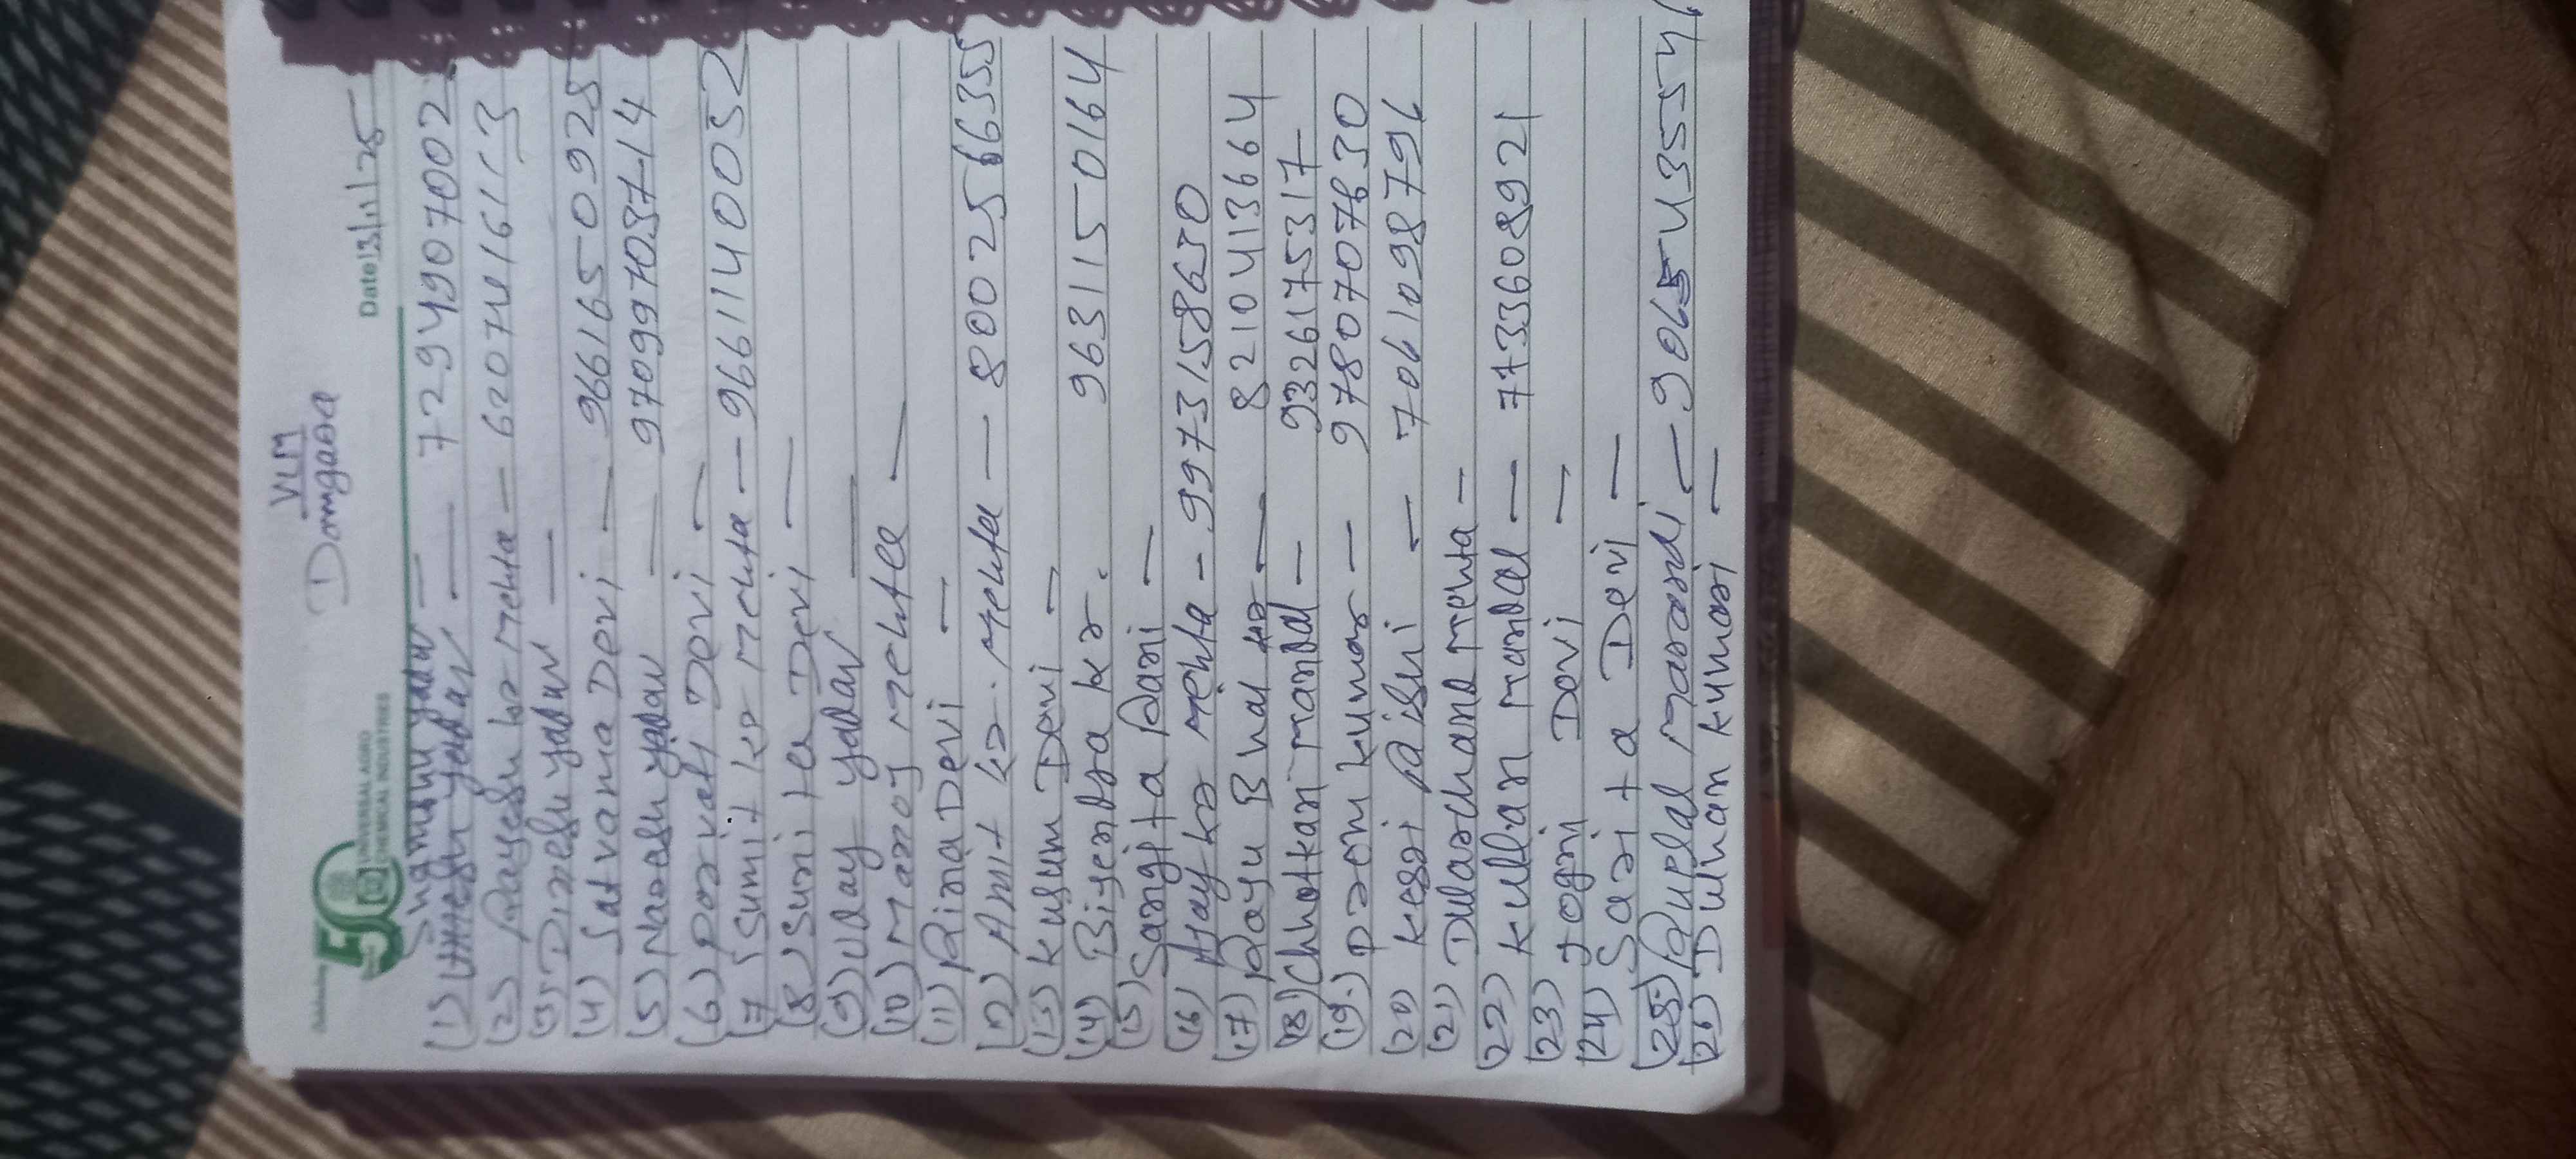 VLM
Domgara
Date 13/1/25
50
UNIVERSAL AGRO
CHEMICAL INDUSTRIES
Shambhu yadav —
(1) Umesh yadav — 7294907002
(2) Rajesh kr Mehta — 6207416113
(3) Dinesh yadav —
(4) Satvama Devi — 9661650925
(5) Naresh yadav — 9709970371 4
(6) Parivati Devi —
(7 Sumit kr Mehta — 9661140052
(8) Sunita Devi —
(9) Uday yadav —
(10) Manoj Mehta —
(11) Rina Devi —
(12) Amit kr. Mehta — 8002566355
(13) Kusum Devi —
(14) Bijendra kr. 9631150164
(15) Sangita Rani —
(16) Ajay kr Mehta - 9973158650
(17) Raju Bhal — 8210413664
(18) Chhotkan Mandal — 9326175317
(19.) Prem kumar — 9780707630
(20) kesri — 7061098796
(21) Dularchand Mehta —
(22) kullan Mandal — 7733608921
(23) Jogni Devi —
(24) Sarita Devi —
(25.) Ruplal Marandi — 9065435546
(26) Dulhan kumari —